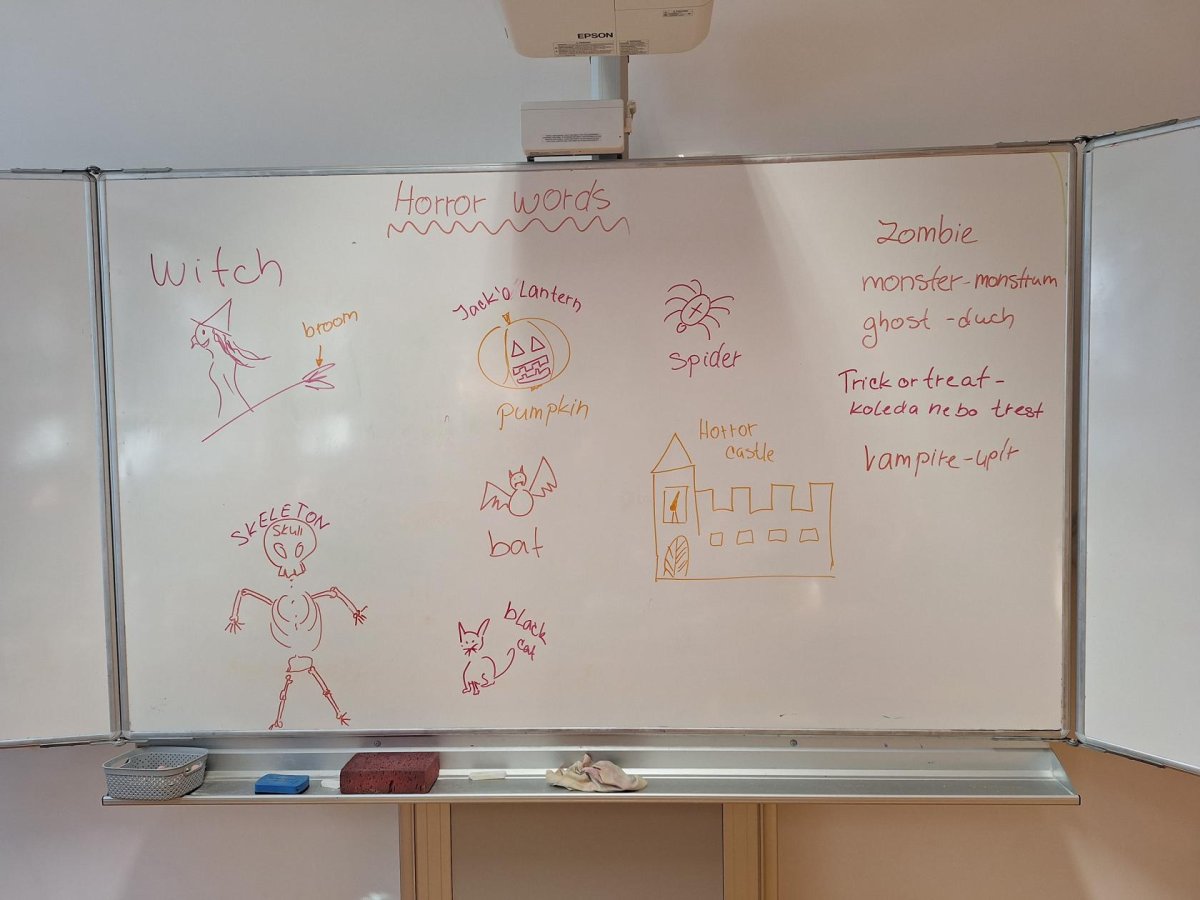 EPSON
Horror words
witch
broom
Jack'o Lantern
pumpkin
spider
Zombie
monster-monstrum
ghost-duch
Trick or treat-
koleda nebo trest
vampire-upír
Horror
castle
bat
SKELETON
Skull
black
cat